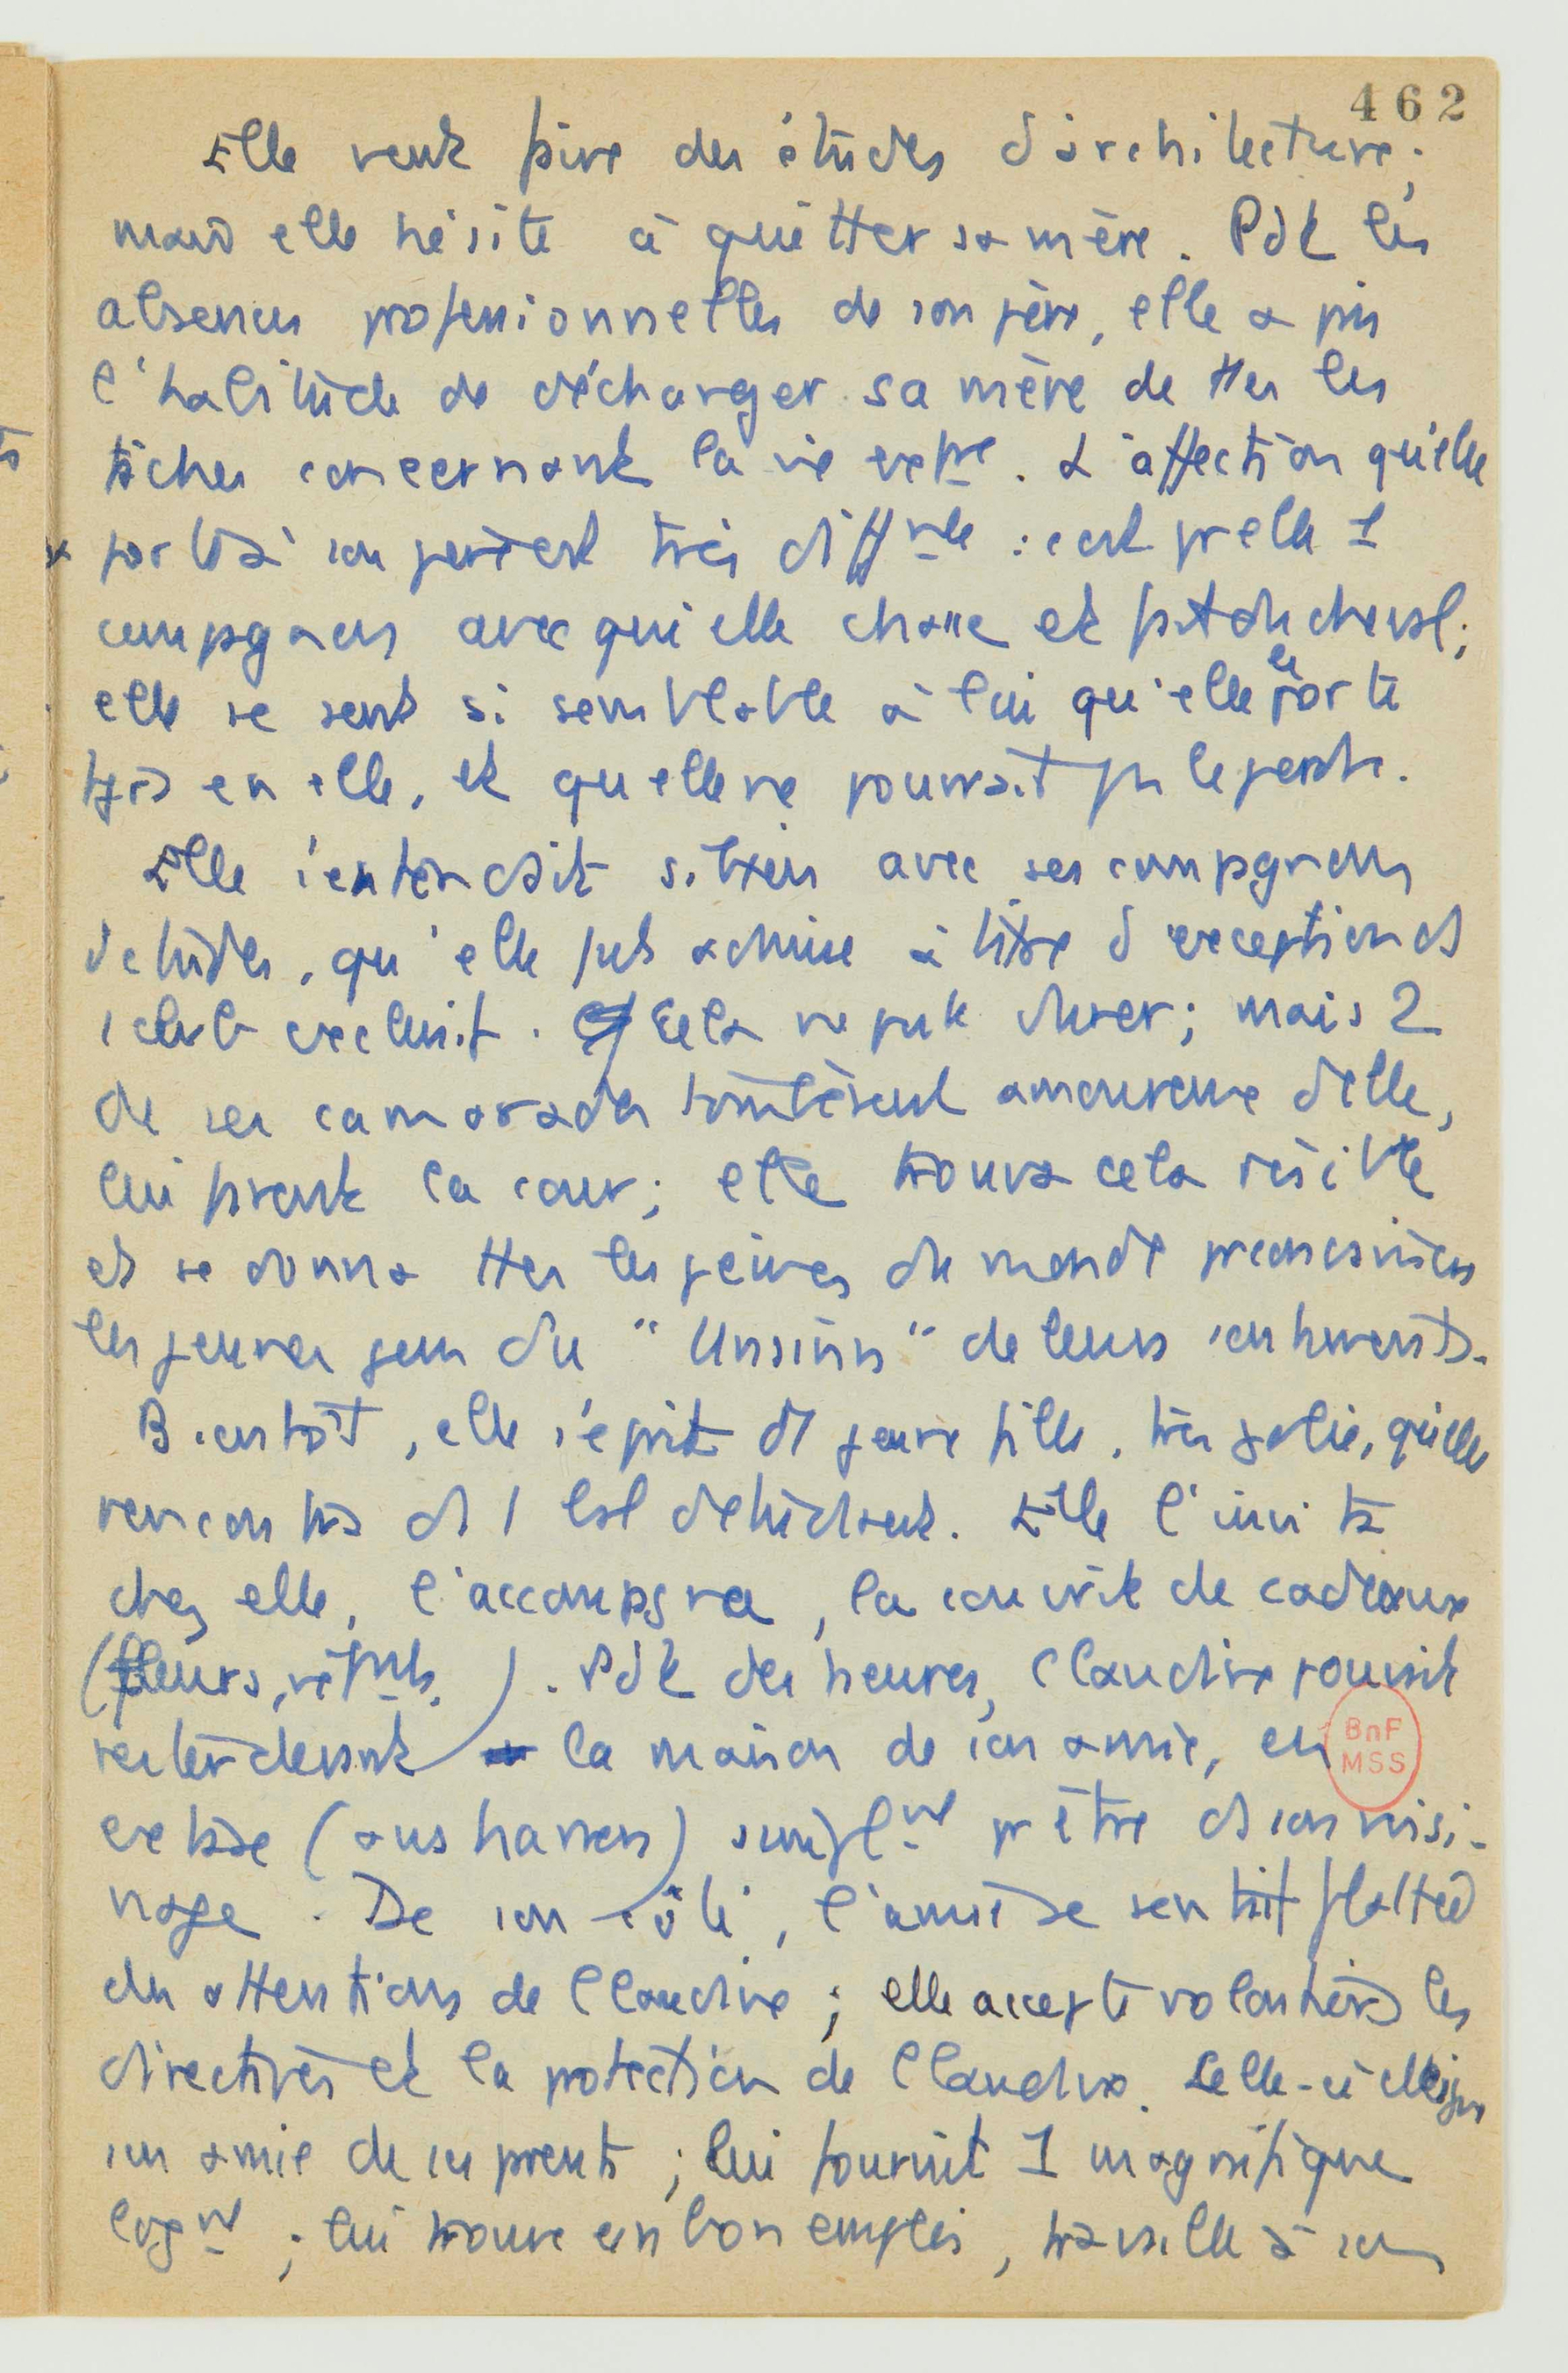 462
Elle veut faire des études d'architecture ;
mais elle hésite à quitter sa mère. Pdt les
absences professionnelles de son père, elle a pris
l'habitude de décharger sa mère de ttes les
tâches concernant la vie extre. L'affection qu'elle
porte à son père est très difffte : c'est pr elle 1
compagnon avec qui elle chasse et fait du cheval ;
elle se sent si semblable à lui qu'elle le porte
en elle, et qu'elle ne pourrait pas le perdre.
Elle s'entendait si bien avec ses compagnons
d'études, qu'elle fut admise à titre d'exception ds
1 club exclusif. Cela ne put durer ; mais 2
de ses camarades tombèrent amoureux d'elle,
lui firent la cour ; elle trouva cela risible
et se donna ttes les peines du monde pr convaincre
les jeunes gens du "Unsinn" de leurs sentiments.
Bientôt, elle s'éprit d'1 jeune fille, très jolie, qu'elle
rencontra ds 1 bal d'étudiants. Elle l'invita
chez elle, l'accompagna, la couvrit de cadeaux
(fleurs, vêtmts). Pdt des heures, Claudine pouvait
rester devant la maison de son amie, en
extase (ausharren) simplmt pr être ds son voisi-
nage. De son côté, l'amie se sentit flattée
des attentions de Claudine ; elle accepte volontiers les
directives et la protection de Claudine. Celle-ci éloigne
son amie de ses parents ; lui fournit 1 magnifique
logmt ; lui trouve un bon emploi, travaille à son
BnF
MSS